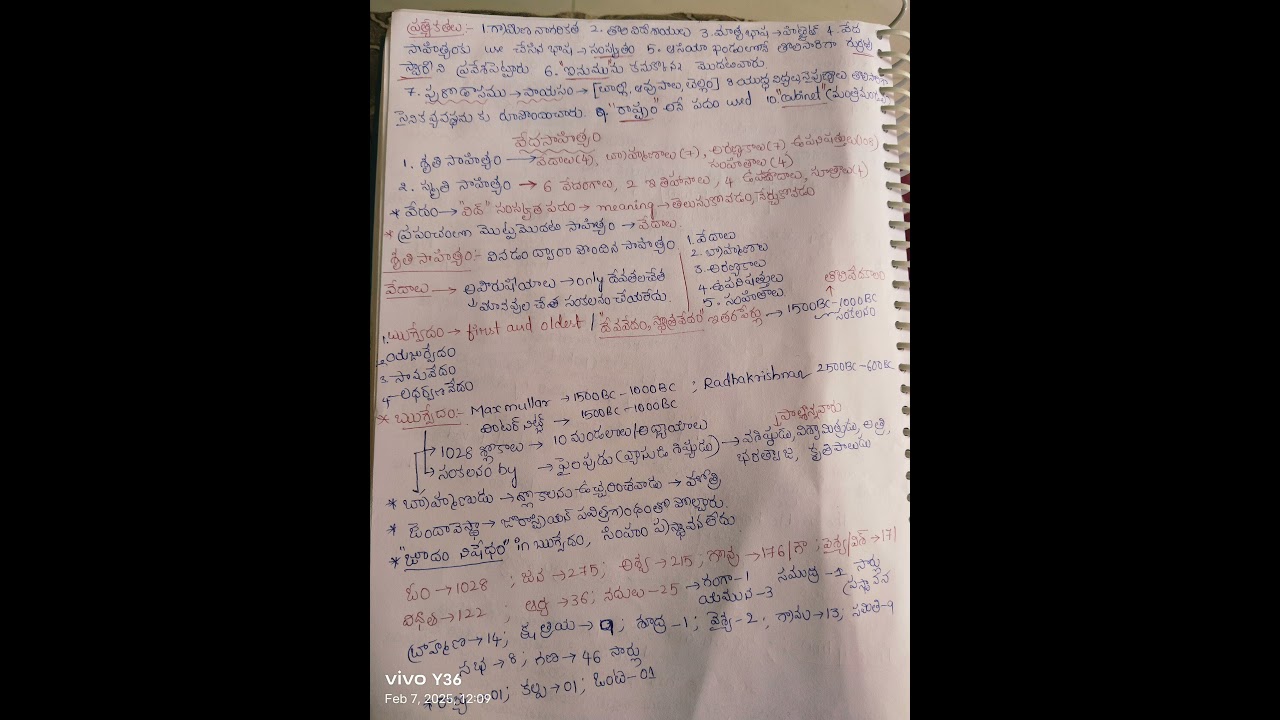 ప్రత్యేకతలు:- 1. గ్రామీణ నాగరికత 2. తొలి విదేశీయులు 3. మాతృభాష → హిట్టైట్ 4. వేద
సాహిత్యంకు use చేసిన భాష → సంస్కృతం 5. ఆసియా ఖండంలోనే తొలిసారిగా గుర్రపు
స్వారీని ప్రవేశపెట్టారు 6. "ఇనుము"ను కనుకొనిన మొదటివారు
7. పురోడాసము → పాయసం → [బార్లీ, ఆవుపాలు, బెల్లం] 8. యుద్ధ విద్యలు నైపుణ్యాలు తొలిసారిగా
సైనిక వ్యవస్థను కు రూపొందించారు. 9. "రాష్ట్రం" అనే పదం used 10. "cabinet" (మంత్రిమండలి)
వేదసాహిత్యం
1. శృతి సాహిత్యం → వేదాలు(4), బ్రాహ్మణాలు(7), అరణ్యకాలు(7), ఉపనిషత్తులు(108)
సంహితాలు(4)
2. స్మృతి సాహిత్యం → 6 వేదాంగాలు, 2 ఇతిహాసాలు, 4 ఉపవేదాలు, సూత్రాలు(4)
* వేదం → "విద్" సంస్కృత పదం → meaning → తెలుసుకోవడం, నేర్చుకోవడం
* ప్రపంచంలోని మొట్టమొదటి సాహిత్యం → వేదాలు.
శృతి సాహిత్యం:- వినడం ద్వారా పొందిన సాహిత్యం
1. వేదాలు
2. బ్రాహ్మణాలు
3. అరణ్యకాలు
4. ఉపనిషత్తులు
5. సంహితాలు
వేదాలు → అపౌరుషేయాలు → only దేవతలచేత
మానవుల చేత సంకలనం చేయలేదు.
తొలివేదకాలం
1. ఋగ్వేదం → first and oldest / "దేవవేదం, స్తోత్రవేదం" ఇతరపేర్లు → 1500BC-1000BC
సంకలనం
2. యజుర్వేదం
3. సామవేదం
4. అధర్వణవేదం
* ఋగ్వేదం:- Maxmullar → 1500BC-1000BC ; Radhakrishnan 2500BC-600BC
వింటర్ నిట్జ్ → 1500BC-1000BC
→ 1028 శ్లోకాలు → 10 మండలాలు/అధ్యాయాలు
పాల్గొన్నవారు
→ సంకలనం by → పైంపుడు (వ్యాసుడి శిష్యుడు) → వశిష్ఠుడు, విశ్వామిత్రుడు, అత్రి,
భరద్వాజ,
* బ్రాహ్మణుడు → శ్లోకాలను ఉచ్చరించేవాడు → హోత్రి
* జెందావెస్థా → జొరాస్ట్రియన్ పవిత్రగ్రంథంతో పోల్చారు.
* "జూదం నిషేధం" in ఋగ్వేదం, సింహం ప్రస్థావన లేదు.
ఓం → 1028 ; జన → 275; అశ్వ → 215; గోవు → 176/గౌ ; వైశ్య/విశ్ → 171
విధీత → 122 ; ఆర్య → 36; నదులు - 25 → గంగా-1 సముద్ర - 1 సార్లు
యమున - 3 (ప్రస్థావన
బ్రాహ్మణ → 14; క్షత్రియ → 9; శూద్ర - 1; వైశ్య - 2; గ్రామ → 13; సమితి - 9
సభ → 8; గణ → 46 సార్లు
01; కల్ప → 01; ఒంటె - 01
vivo Y36
Feb 7, 2025, 12:09